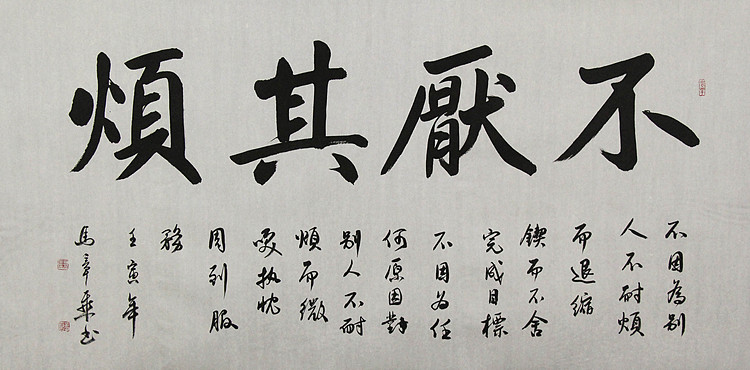 不厭其煩
不因為别
人不耐煩
而退縮
鍥而不舍
完成目標
不因为任
何原因對
别人不耐
煩而微
笑执忱
周到服
務
壬寅年
馬章乘书